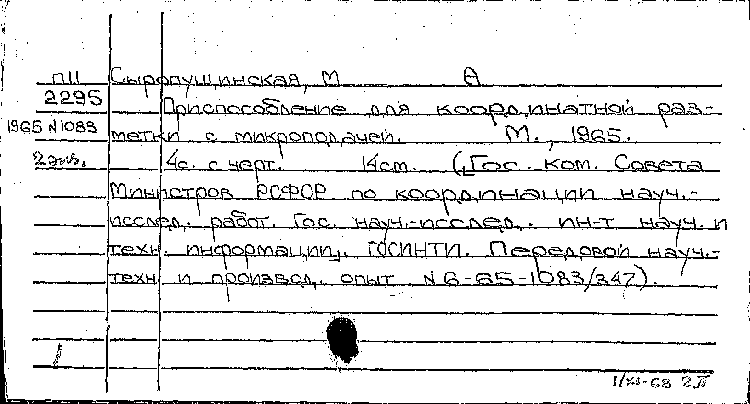 П11 Сыропущинская, М А
2295 Приспособление для координатной раз-
1965 N1083 метки с микроподачей. М., 1965.
2 экз. 4с. с черт. 14см. (Гос. ком. Совета
Министров РСФСР по координации науч.-
исслед. работ. Гос. науч.-исслед. ин-т науч. и
техн. информации. ГОСИНТИ. Передовой науч.-
техн и производ. опыт N 6-65-1083/247).
1/XI-68 2 П